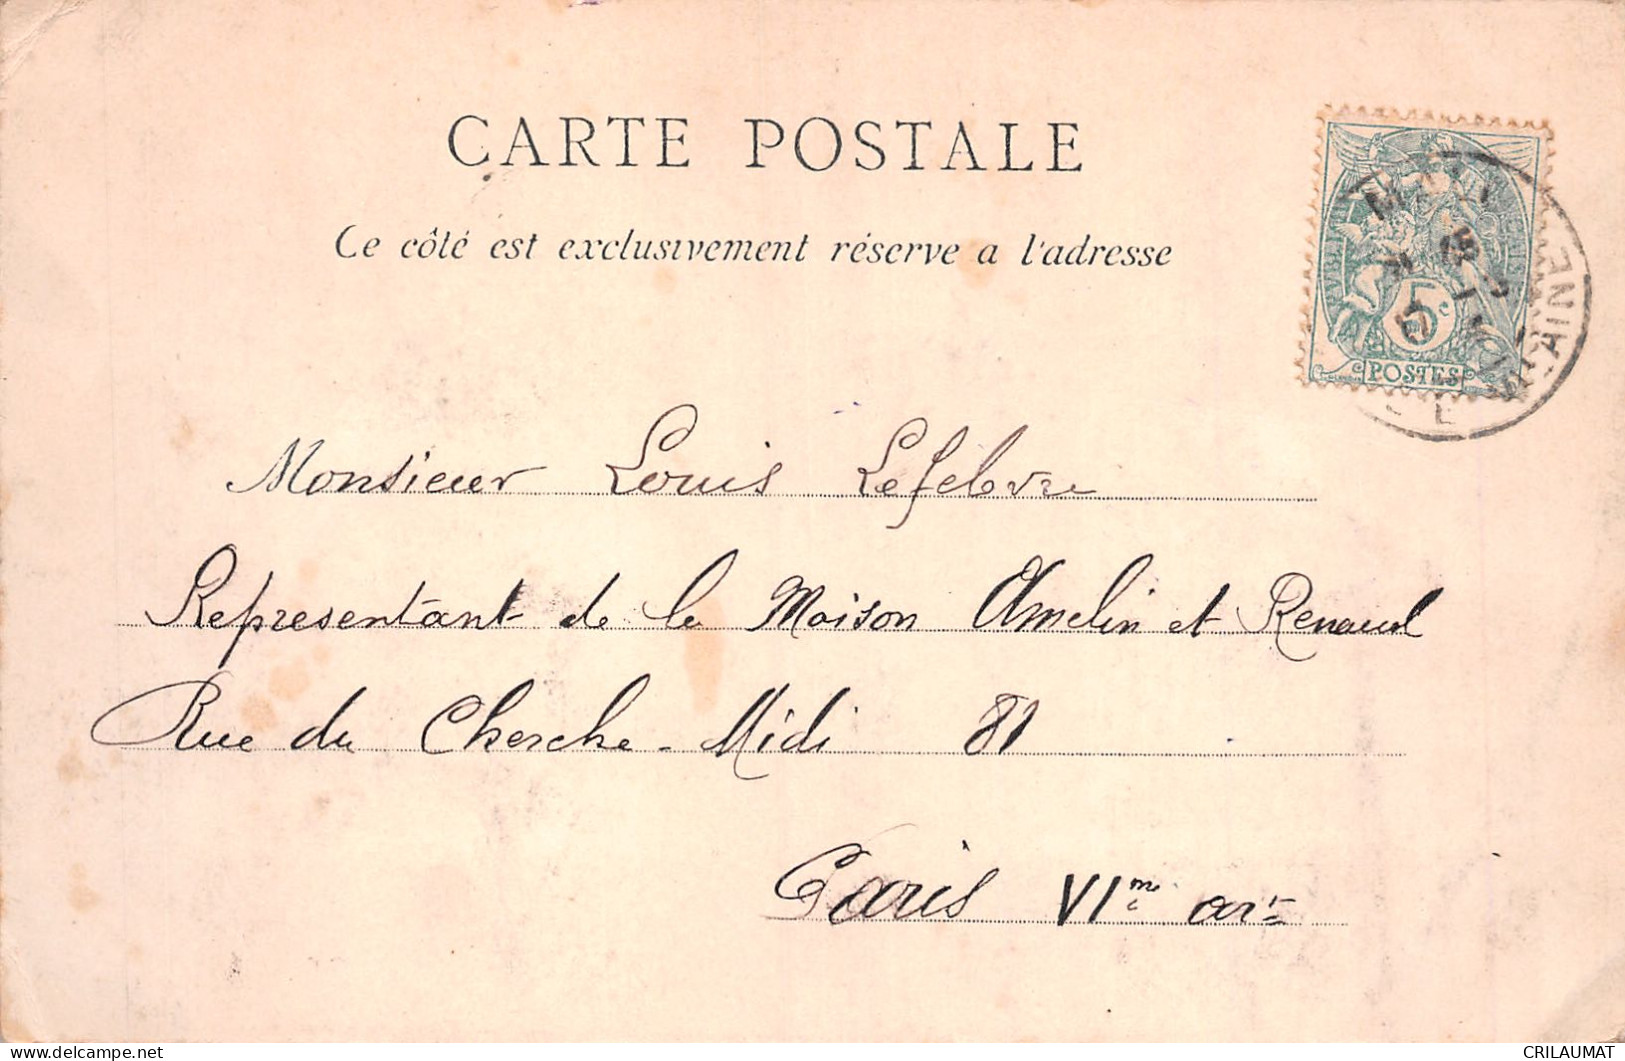 CARTE POSTALE
Ce côté est exclusivement réservé a l'adresse
5c
POSTES
Monsieur Louis Lefebvre
Representant de la Maison Amelin et Renaud
Rue du Cherche-Midi 81
Paris VIme arrt
CRILAUMAT